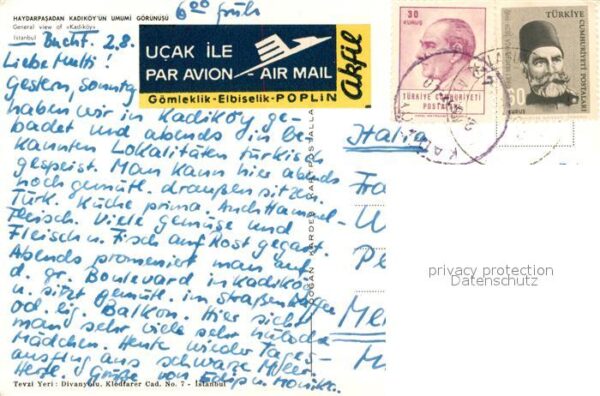 HAYDARPAŞADAN KADIKÖY'ÜN UMUMİ GÖRÜNÜŞÜ
General view of «Kadıköy»
İstanbul
6⁰⁰ früh
Bucht. 2.8.
UÇAK İLE
PAR AVION - AIR MAIL
Akfil
Gömleklik-Elbiselik-POPLİN
30
KURUŞ
TÜRKİYE CUMHURİYETİ
POSTALARI
TÜRKİYE
CUMHURİYETİ POSTALARI
60
KURUŞ
Liebe Mutti!
Gestern, sonntg
haben wir in Kadiköy ge-
badet und abends in be-
kannten Lokalitäten türkisch
gespeist. Man kann hier abends
noch gemütl. draußen sitzen.
Türk. Küche prima. Auch Hammel-
Fleisch. Viele gemüse und
Fleisch u. Fisch auf Rost gegart.
Abends promeniert man auf
d. gr. Boulevard in Kadiköy
u. sitzt gemütl. im Straßen
od. lig. Balkon. Hier sieht
man sehr viele sehr
Mädchen. Heute wieder Tages-
ausflug ans schwarze Meer
Herzl. Grüße von u. Monika.
Italia
DOĞAN KARDEŞ KARTPOSTALLARI
privacy protection
Datenschutz
Tevzi Yeri : Divanyolu, Klodfarer Cad. No. 7 - İstanbul